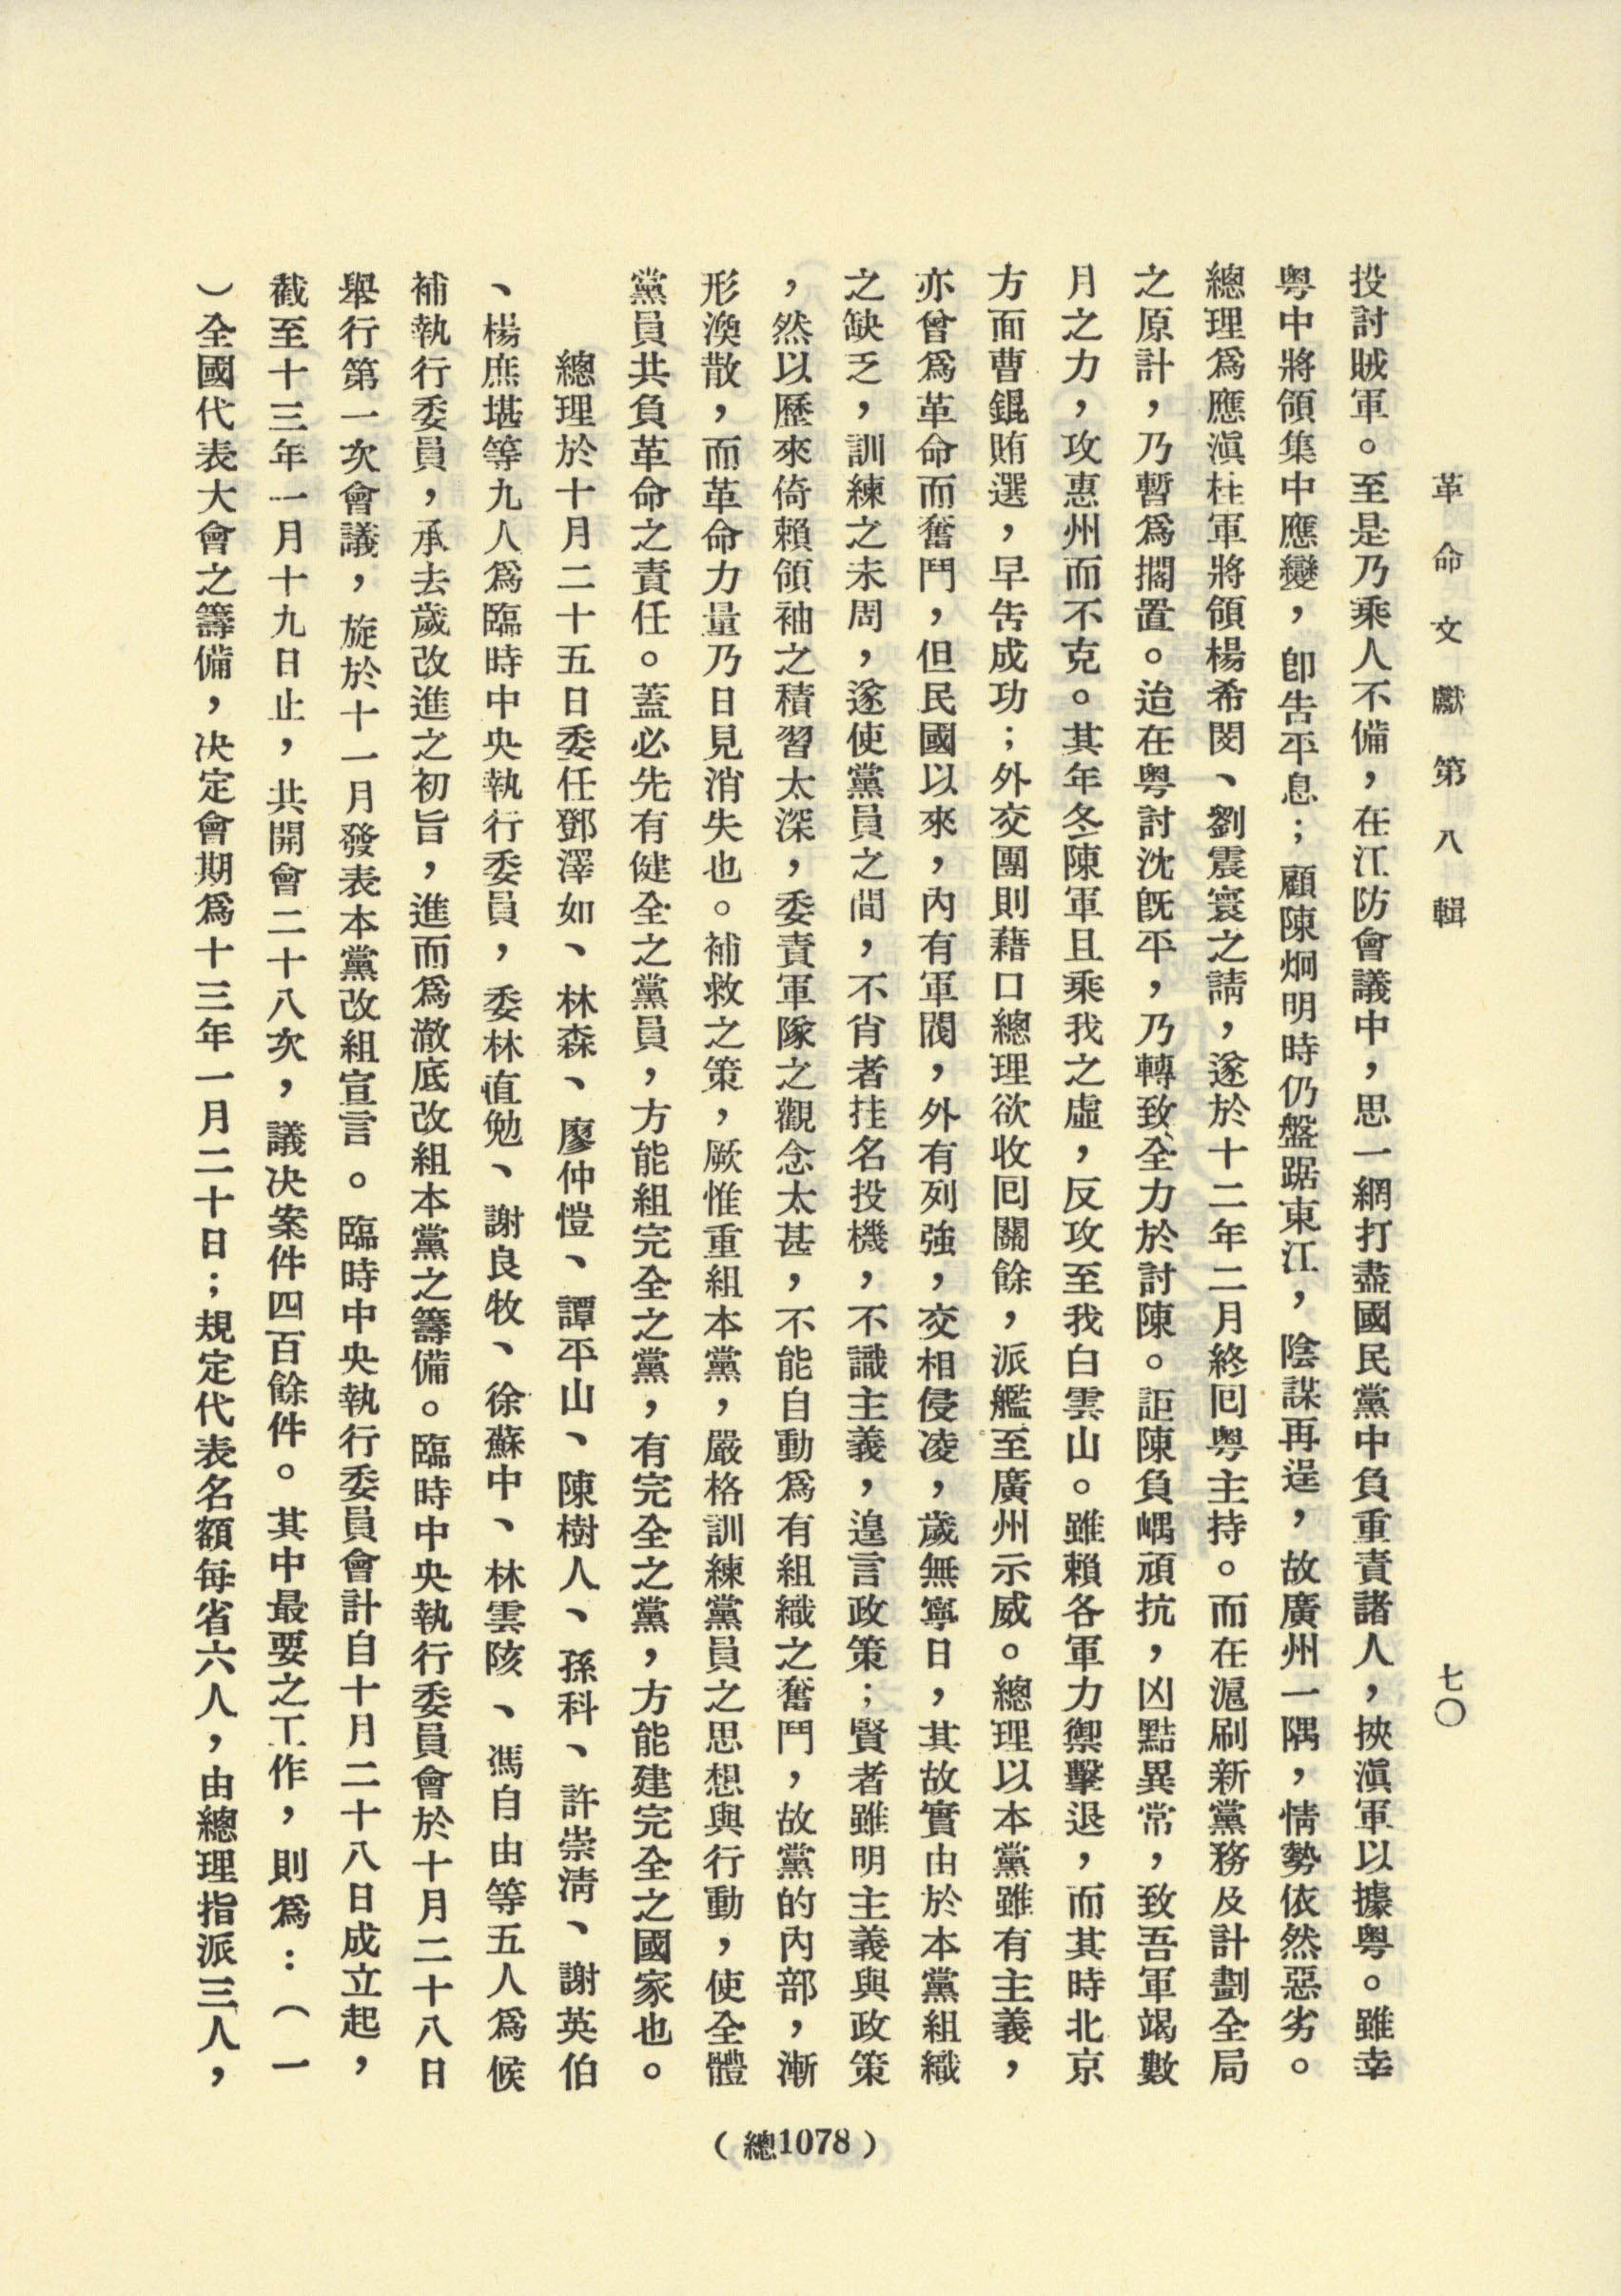 革命文獻第八輯
七〇
投討賊軍。至是乃乘人不備，在江防會議中，思一網打盡國民黨中負重責諸人，挾滇軍以據粵。雖幸
粵中將領集中應變，卽吿平息；顧陳烱明時仍盤踞東江，陰謀再逞，故廣州一隅，情勢依然惡劣。
總理爲應滇桂軍將領楊希閔、劉震寰之請，遂於十二年二月終囘粵主持。而在滬刷新黨務及計劃全局
之原計，乃暫爲擱置。迨在粵討沈旣平，乃轉致全力於討陳。詎陳負嵎頑抗，凶黠異常，致吾軍竭數
月之力，攻惠州而不克。其年冬陳軍且乘我之虛，反攻至我白雲山。雖賴各軍力禦擊退，而其時北京
方面曹錕賄選，早吿成功；外交團則藉口總理欲收囘關餘，派艦至廣州示威。總理以本黨雖有主義，
亦曾爲革命而奮鬥，但民國以來，內有軍閥，外有列強，交相侵凌，歲無寧日，其故實由於本黨組織
之缺乏，訓練之未周，遂使黨員之間，不肖者挂名投機，不識主義，遑言政策；賢者雖明主義與政策
，然以歷來倚賴領袖之積習太深，委責軍隊之觀念太甚，不能自動爲有組織之奮鬥，故黨的內部，漸
形渙散，而革命力量乃日見消失也。補救之策，厥惟重組本黨，嚴格訓練黨員之思想與行動，使全體
黨員共負革命之責任。蓋必先有健全之黨員，方能組完全之黨，有完全之黨，方能建完全之國家也。
總理於十月二十五日委任鄧澤如、林森、廖仲愷、譚平山、陳樹人、孫科、許崇淸、謝英伯
、楊庶堪等九人爲臨時中央執行委員，委林直勉、謝良牧、徐蘇中、林雲陔、馮自由等五人爲候
補執行委員，承去歲改進之初旨，進而爲澈底改組本黨之籌備。臨時中央執行委員會於十月二十八日
舉行第一次會議，旋於十一月發表本黨改組宣言。臨時中央執行委員會計自十月二十八日成立起，
截至十三年一月十九日止，共開會二十八次，議決案件四百餘件。其中最要之工作，則爲：（一
）全國代表大會之籌備，決定會期爲十三年一月二十日；規定代表名額每省六人，由總理指派三人，
（總1078）